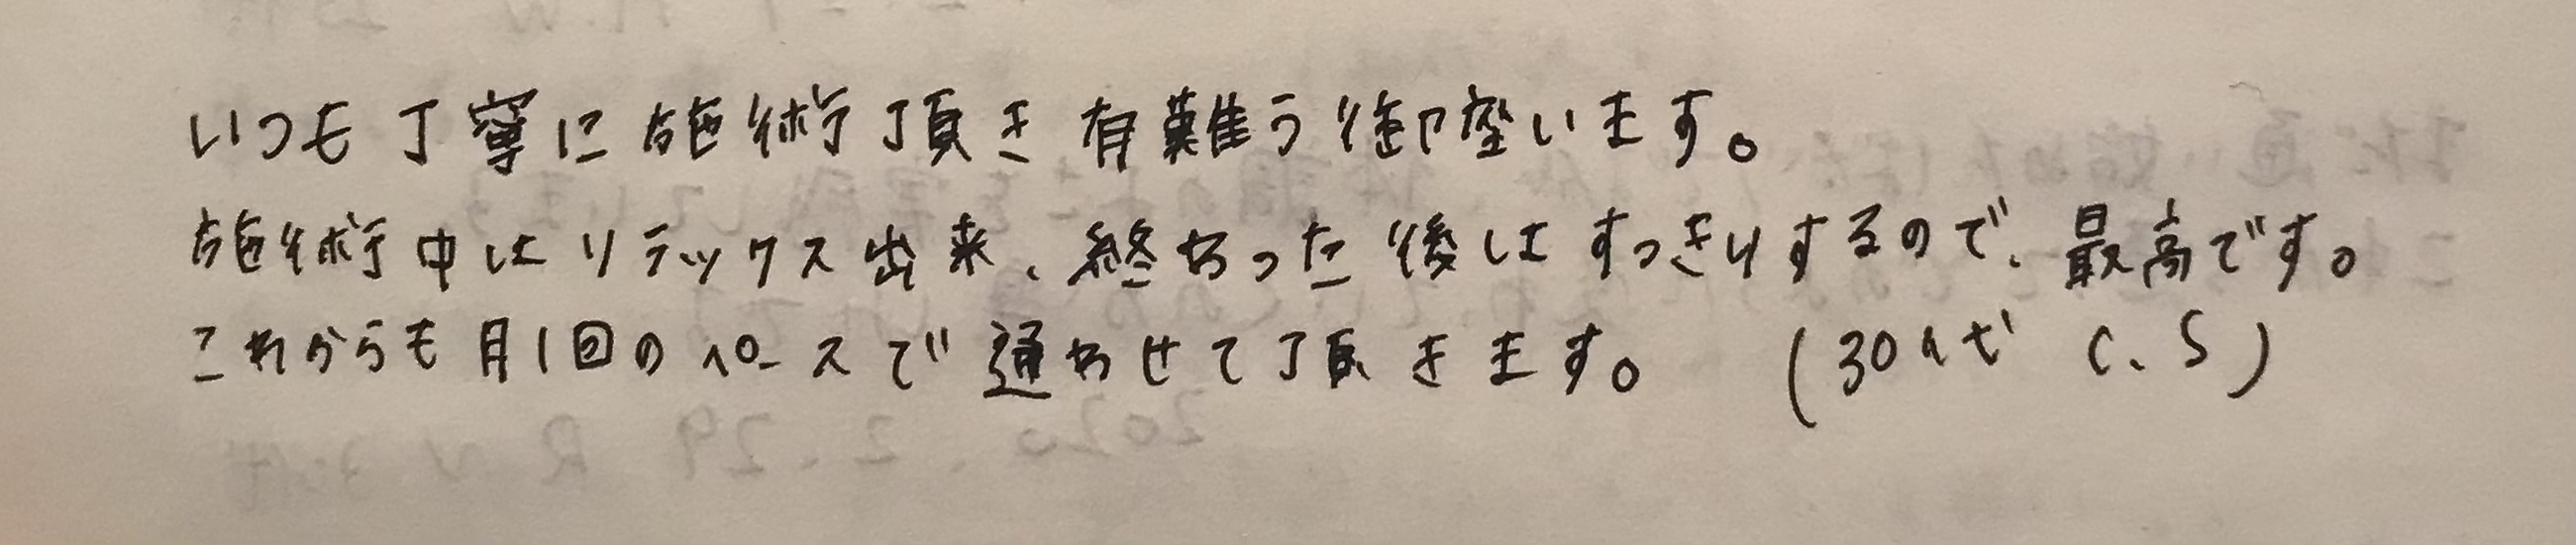 いつも丁寧に施術頂き有難う御座います。
施術中はリラックス出来、終わった後はすっきりするので、最高です。
これからも月1回のペースで通わせて頂きます。 (30代 C.S)